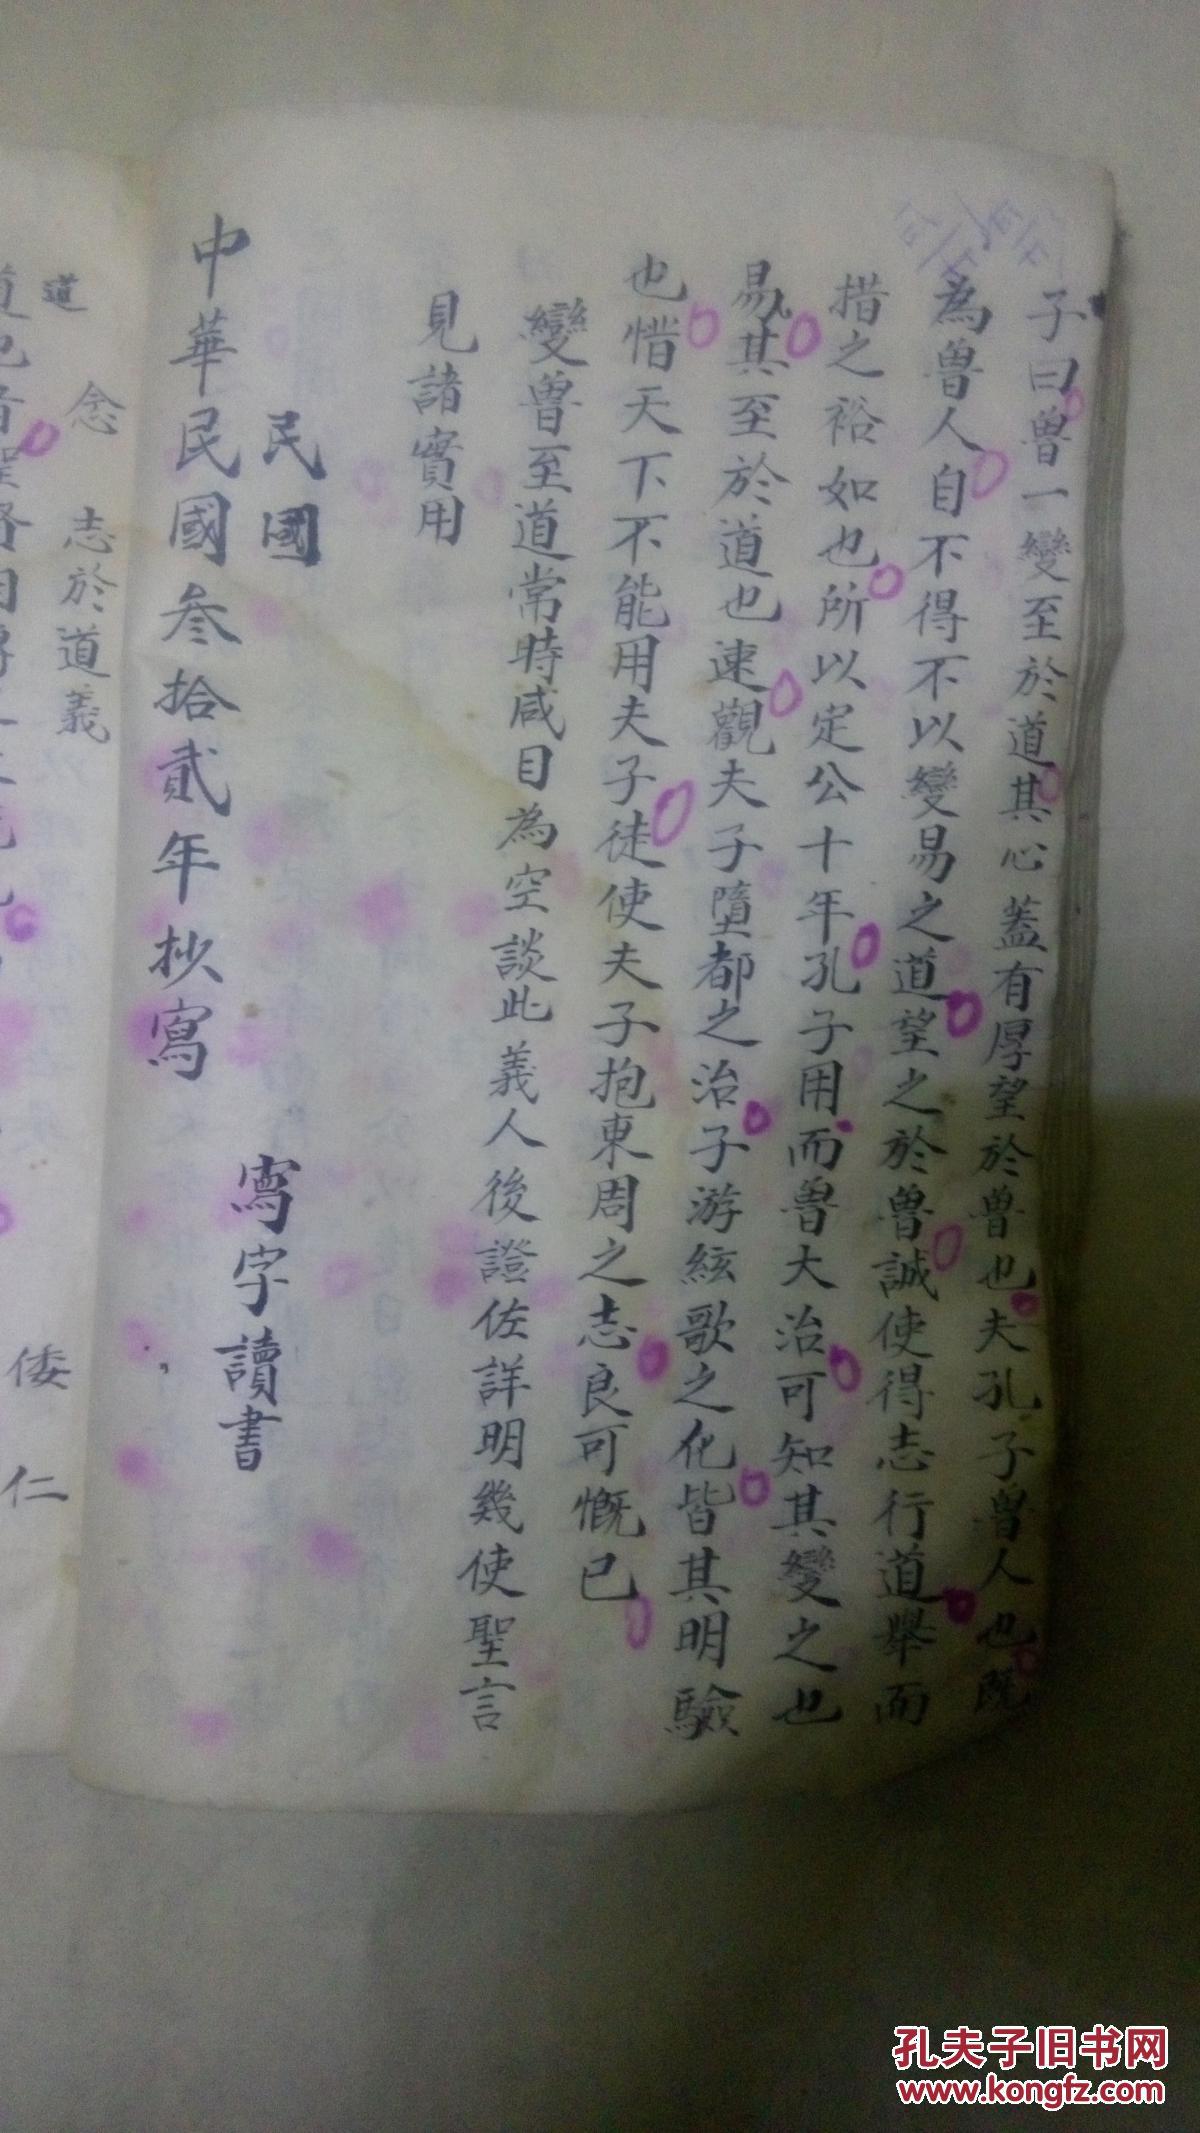 子曰魯一變至於道其心蓋有厚望於魯也夫孔子魯人也既
為魯人自不得不以變易之道望之於魯誠使得志行道舉而
措之裕如也所以定公十年孔子用而魯大治可知其變之也
易其至於道也速觀夫子墮都之治子游絃歌之化皆其明驗
也惜天下不能用夫子徒使夫子抱東周之志良可慨已
變魯至道常時咸目為空談此義人後證佐詳明幾使聖言
見諸實用
民國
寫字讀書
中華民國叁拾貳年抄寫
念 志於道義
道
倭 仁
孔夫子旧书网
www.kongfz.com